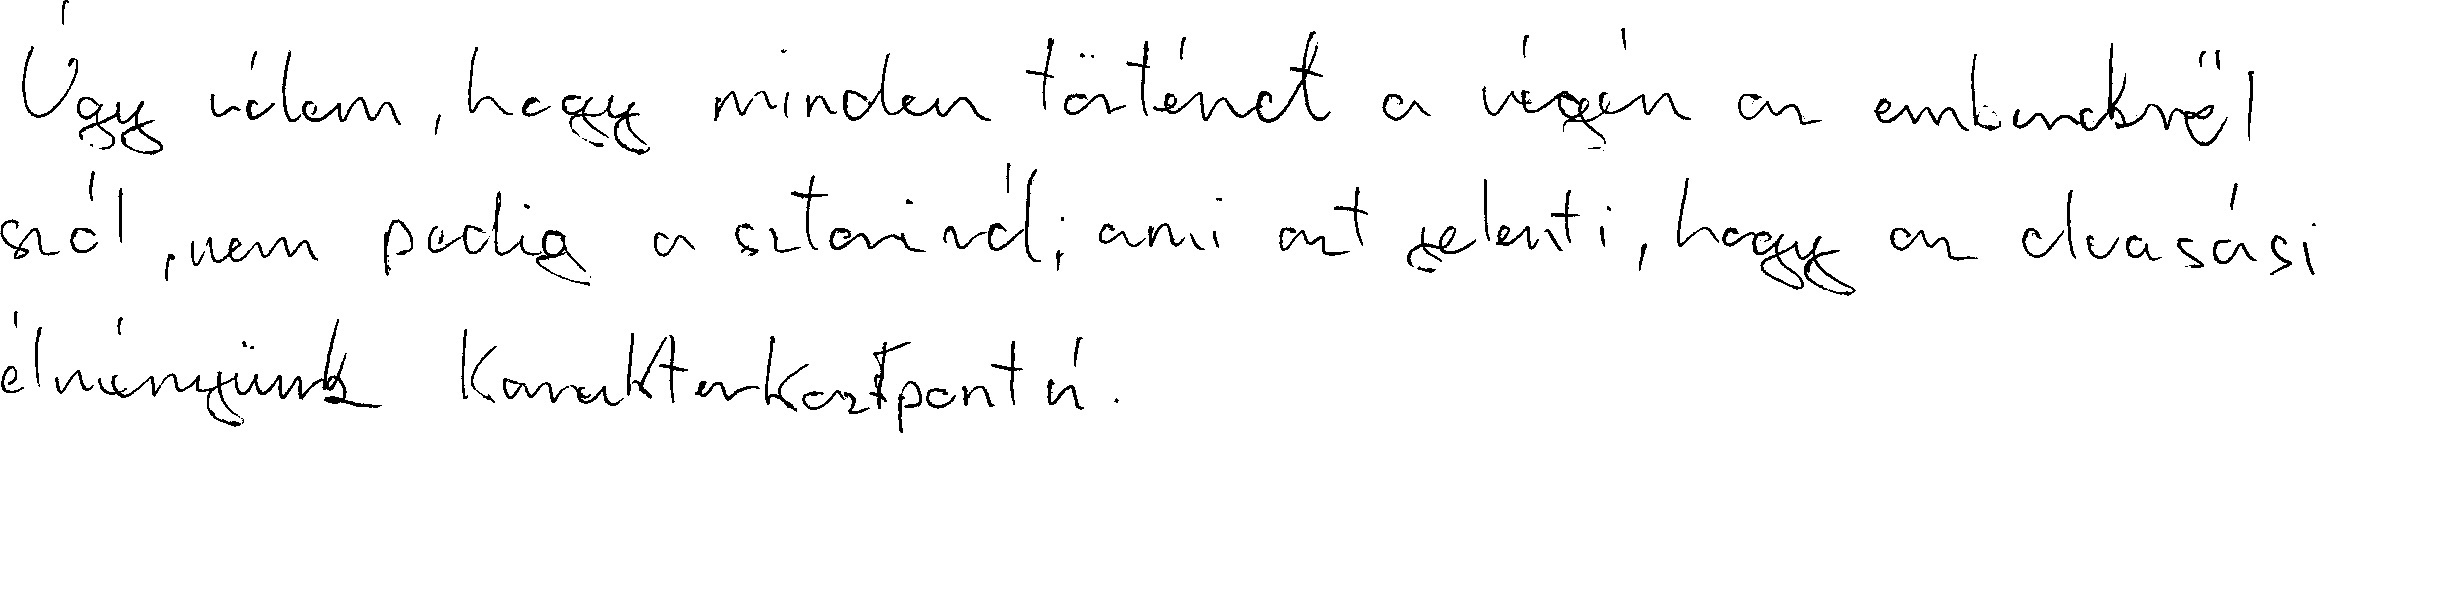 Úgy vélem, hogy minden történet a végén az emberekről
szól, nem pedig a sztoriról; ami azt jelenti, hogy az olvasási
élményünk karakterközpontú.